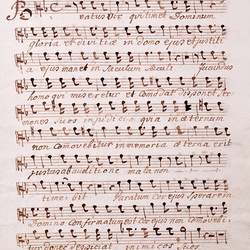 Beatus vir qui timet Dominum
gloria et divitiæ in domo ejus et justiti
a ejus manet in sæculum sæculi jucundus
homo qui miseretur et comodat disponet ser
mones suos in judicio quia in æternum
non comovebitur in memoria æterna erit
justus ab auditione mala non
timebit Paratum cor ejus sperare in
Domino confirmatum est cor ejus non comovebi
tur donec despiciat inimicos suos